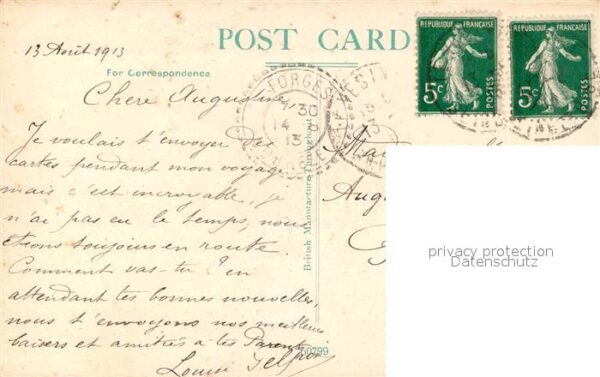 13 Août 1913
POST CARD
For Correspondence
RÉPUBLIQUE FRANÇAISE
5c
POSTES
RÉPUBLIQUE FRANÇAISE
5c
POSTES
FORGES
30
14 8
13
Chère Augustine
Je voulais t'envoyer des
cartes pendant mon voyage
mais c'est incroyable, je
n'ai pas eu le temps, nous
étions toujours en route.
Comment vas-tu? en
attendant tes bonnes nouvelles,
nous t'envoyons nos meilleurs
baisers et amitiés à tes Parents
Louise
British Manufacture Throughout
50799
privacy protection
Datenschutz